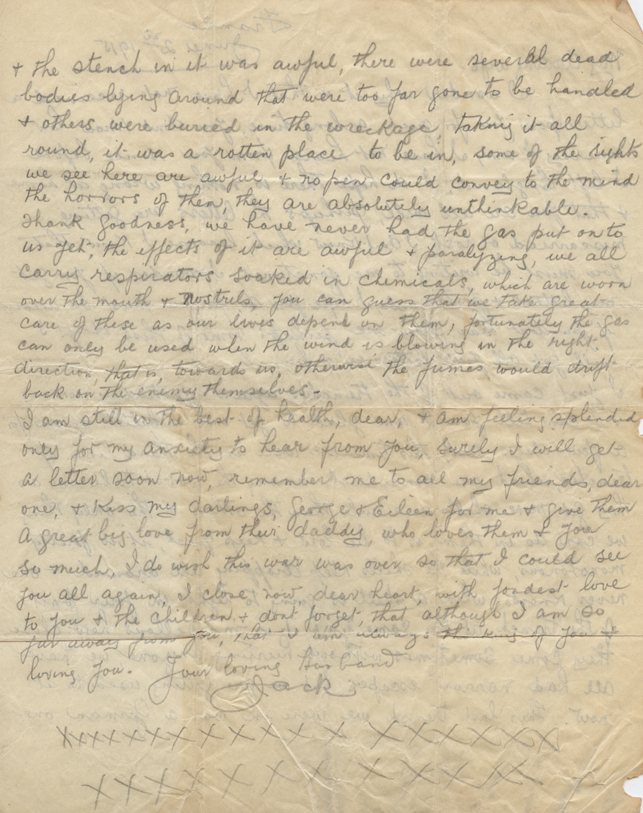 & the stench in it was awful, there were several dead
bodies lying around that were too far gone to be handled
& others were buried in the wreckage taking it all
round, it was a rotten place to be in, some of the sights
we see here are awful & no pen could convey to the mind
the horrors of them, they are absolutely unthinkable.
Thank goodness, we have never had the gas put on to
us yet, the effects of it are awful & paralyzing, we all
carry respirators soaked in chemicals, which are worn
over the mouth & nostrils, you can guess that we take great
care of these as our lives depend on them, fortunately the gas
can only be used when the wind is blowing in the right
direction, that is, towards us, otherwise the fumes would drift
back on the enemy themselves.
I am still in the best of health, dear, & am feeling splendid
only for my anxiety to hear from you, surely I will get
a letter soon now, remember me to all my friends, dear
one, & kiss my darlings, George & Eileen for me & give them
a great big love from their daddy who loves them & you
so much, I do wish this war was over so that I could see
you all again, I close now, dear heart, with fondest love
to you & the children & dont forget, that although I am so
far away from you, that I am always thinking of you &
loving you. Your loving Husband
Jack
XXXXXXXXXXXXXXXXXXX
XXXXXXXXXXXX